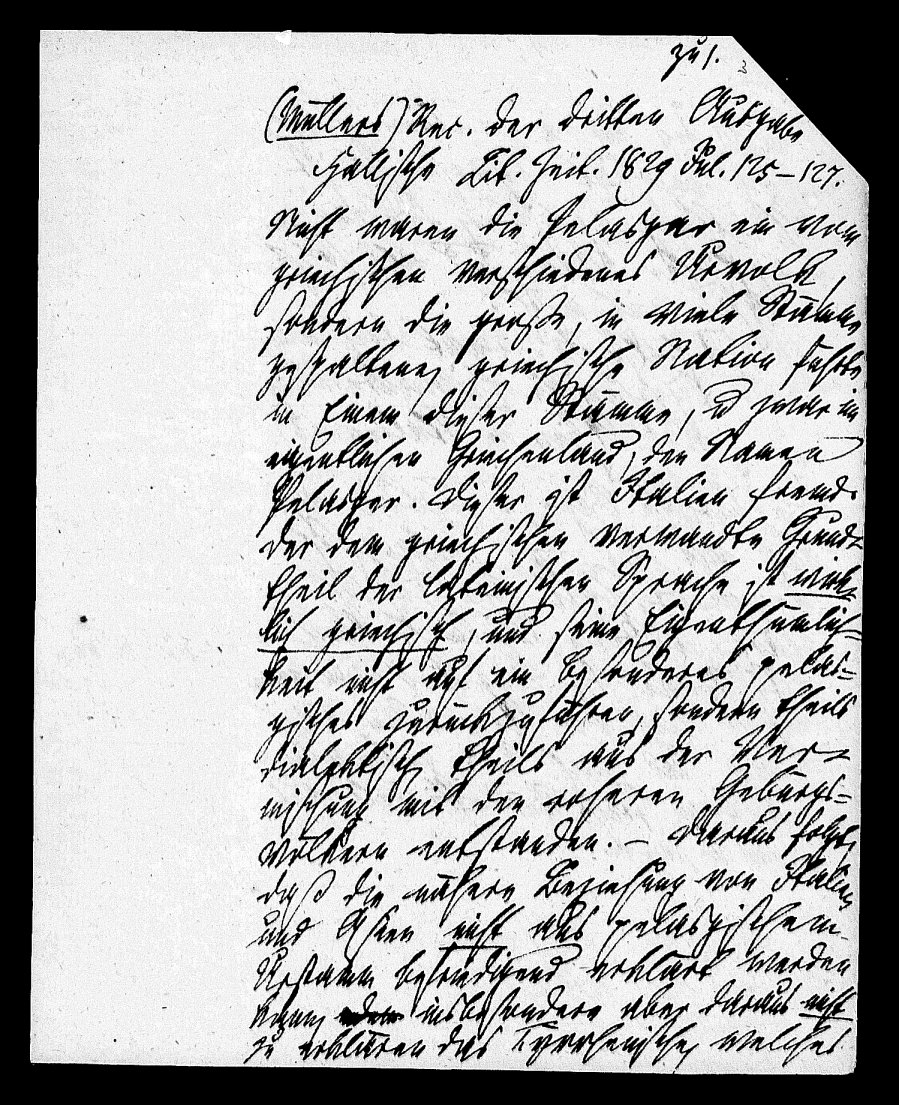 zu 1. 3
(Müllers) Rec. der dritten Ausgabe
Hallische Lit. Zeit. 1829 Jul. 125–127.
Nicht waren die Pelasger ein vom
griechischen verschiedenes Urvolk,
sondern die große, in viele Stämme
gespaltene, griechische Nation führte
in Einem dieser Stämme, u zwar im
eigentlichen Griechenland, den Namen
Pelasger. Dieser ist Italien fremd.
Der dem griechischen verwandte Grund-
theil der lateinischen Sprache ist wirk-
lich griechisch, und seine Eigenthümlich-
keit nicht auf ein besonderes pelas-
gisches zurückzuführen, sondern theils
dialektisch, theils aus der Ver-
mischung mit den roheren Gebürgs-
völkern entstanden. – Daraus folgt,
daß die nähere Beziehung von Italien
und Asien nicht aus pelasgischem
Urstamm befriedigend erklärt werden
kann, insbesondere aber daraus nicht
zu erklären das Tyrrhenische, welches